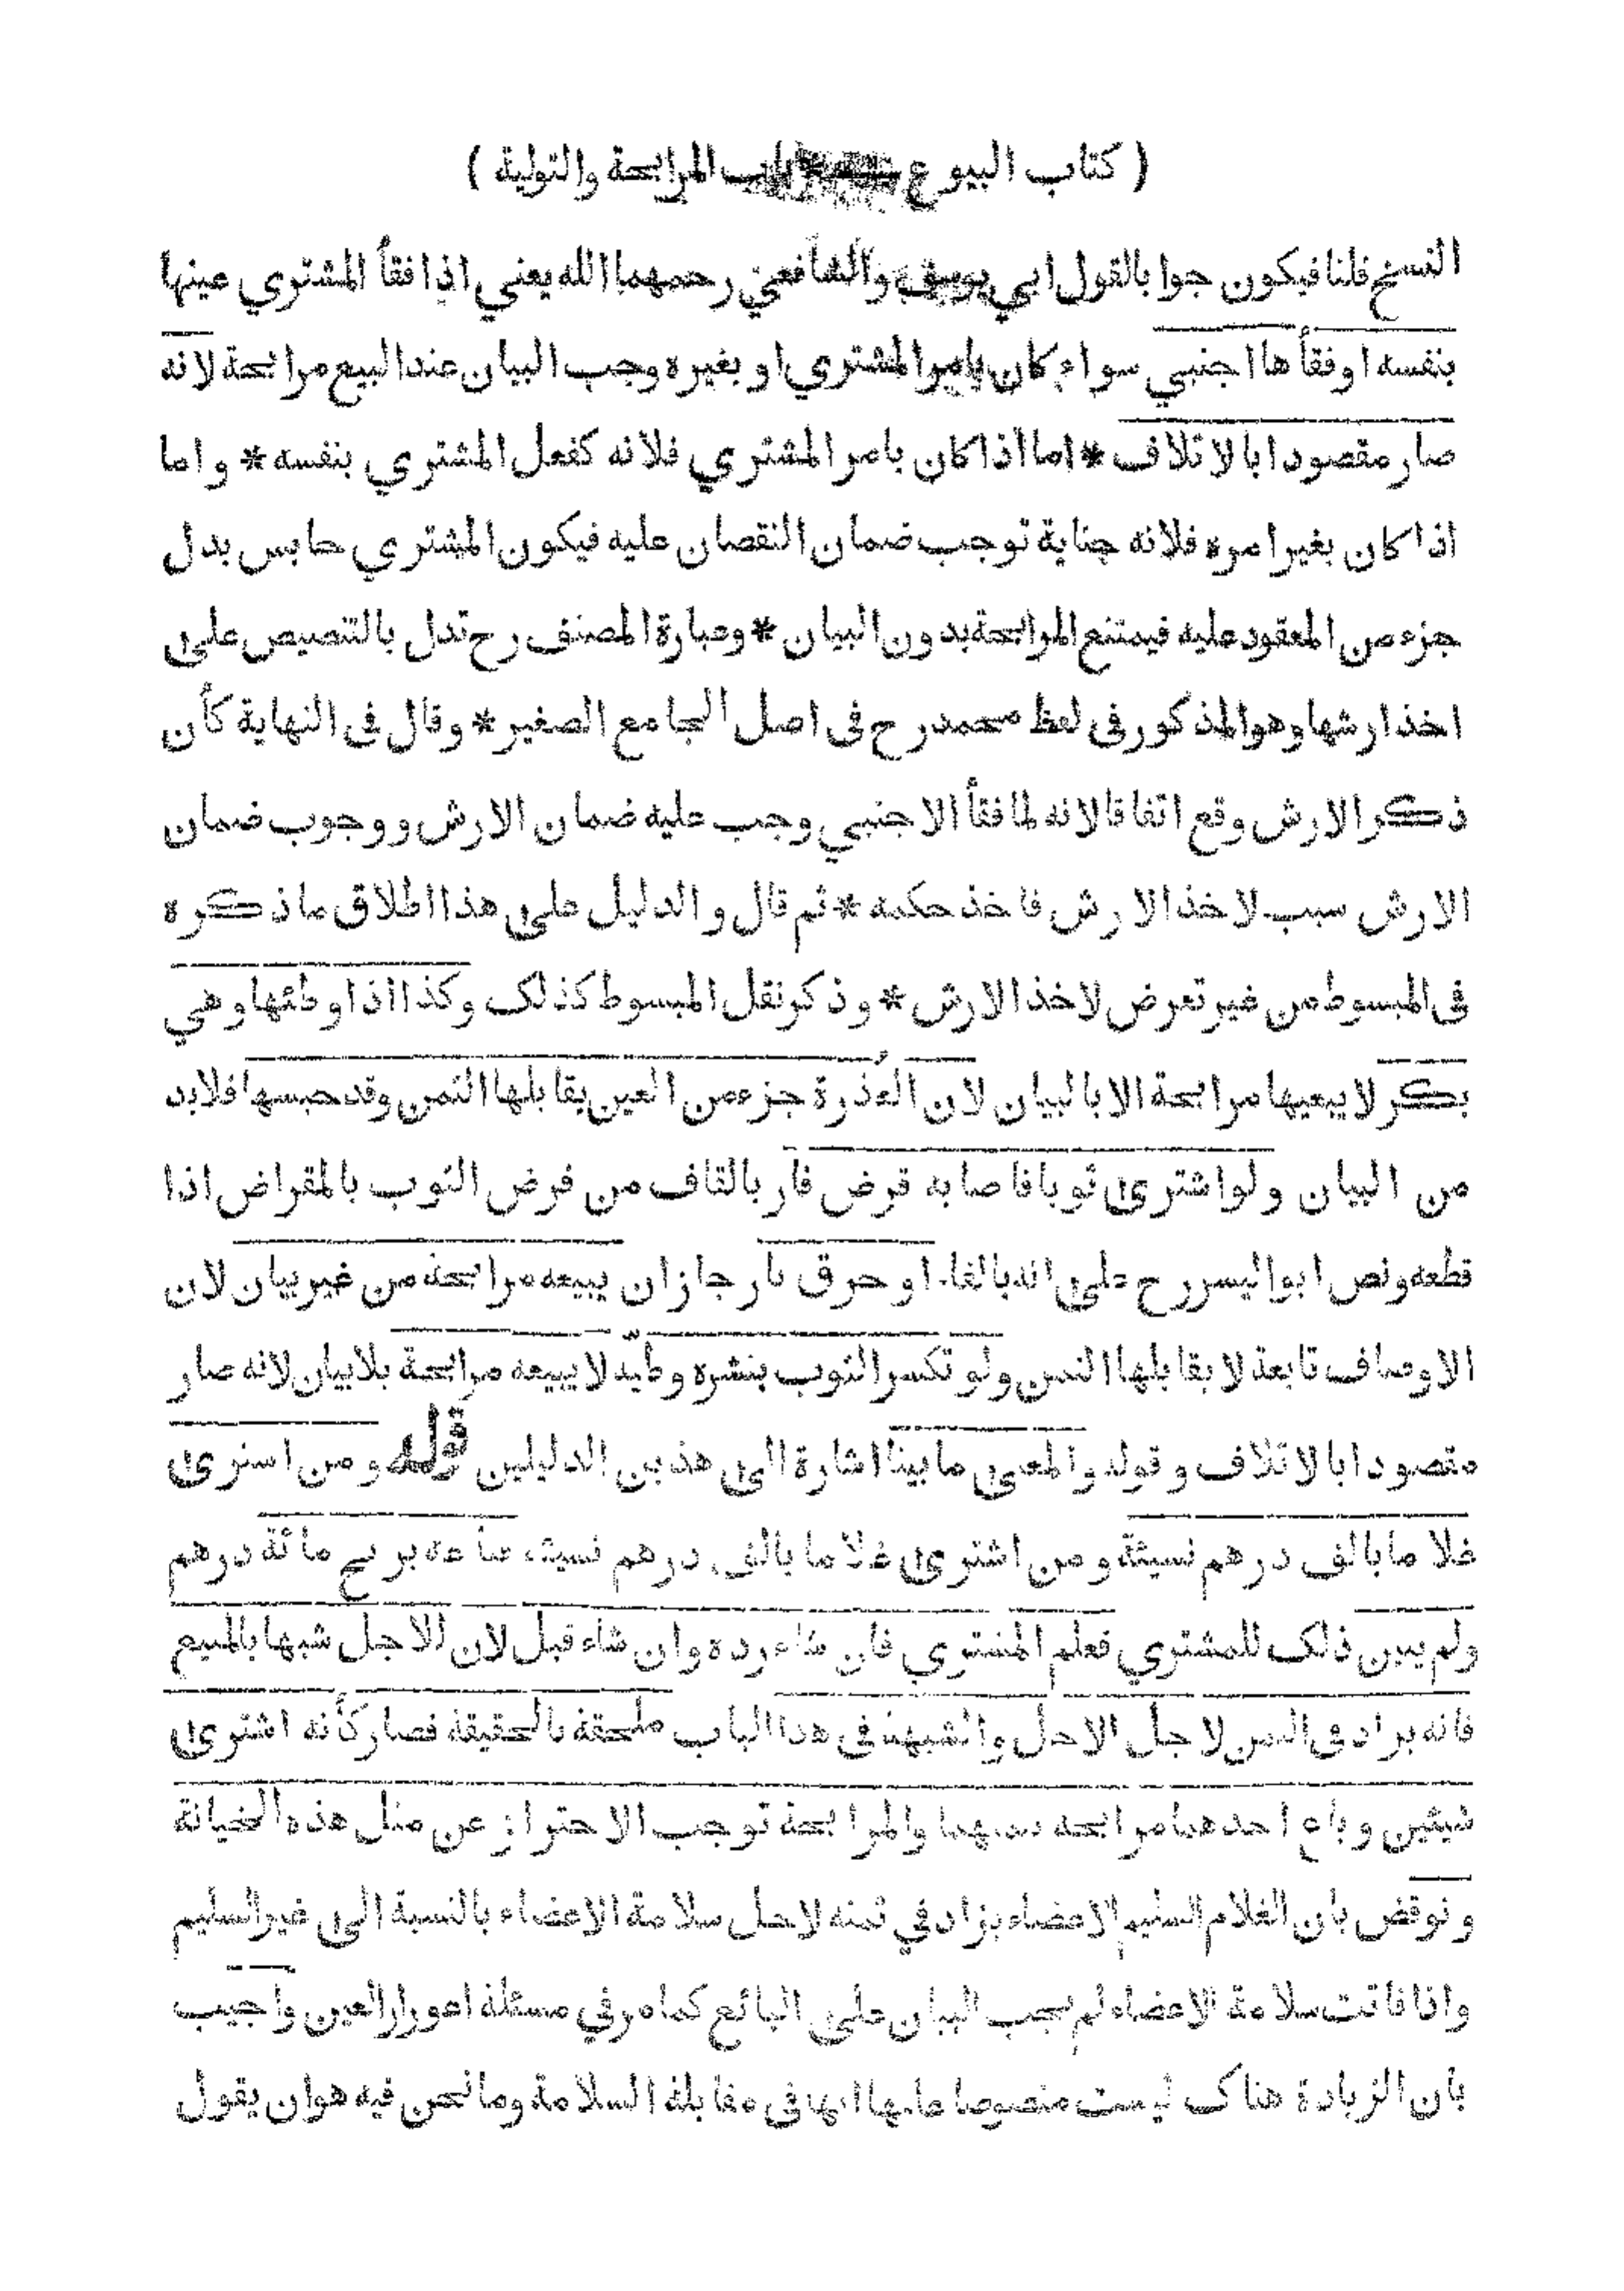 ( كتاب البيوع باب المرابحة والتولية )
النسخ قلنا فيكون جوابا لقول ابي يوسف والشافعي رحمهما الله يعني اذا فقأ المشتري عينها
بنفسه او فقأها اجنبي سواء كان بامر المشتري او بغيره وجب البيان عند البيع مرابحة لانه
صار مقصودا بالاتلاف * اما اذا كان بامر المشتري فلانه كفعل المشتري بنفسه * واما
اذا كان بغير امره فلانه جناية توجب ضمان النقصان عليه فيكون المشتري حابس بدل
جزء من المعقود عليه فيمتنع المرابحة بدون البيان * وعبارة المصنف رح تدل بالتنصيص على
اخذ ارشها وهو المذكور فى لفظ محمد رح فى اصل الجامع الصغير * وقال فى النهاية كأن
ذكر الارش وقع اتفاقا لانه لما فقأ الاجنبي وجب عليه ضمان الارش ووجوب ضمان
الارش سبب لاخذ الارش فاخذ حكمه * ثم قال والدليل على هذا اطلاق ما ذكره
فى المبسوط من غير تعرض لاخذ الارش * وذكر نقل المبسوط كذلك وكذا اذا وطئها وهي
بكر لا يبيعها مرابحة الا بالبيان لان العذرة جزء من العين يقابلها الثمن وقد حبسها فلا بد
من البيان ولو اشترى ثوبا فاصابه قرض فار بالقاف من قرض الثوب بالمقراض اذا
قطعه ونص ابو اليسر رح على انه بالفاء او حرق نار جاز ان يبيعه مرابحة من غير بيان لان
الاوصاف تابعة لا يقابلها الثمن ولو تكسر الثوب بنشره وطيّه لا يبيعه مرابحة بلا بيان لانه صار
مقصودا بالاتلاف وقوله والمعنى ما بينا اشارة الى هذين الدليلين قوله ومن اشترى
غلاما بالف درهم نسيئة ومن اشترى غلاما بالف درهم نسيئة فباعه بربح مائة درهم
ولم يبين ذلك للمشتري فعلم المشتري فان شاء رده وان شاء قبل لان للاجل شبها بالمبيع
فانه يزاد فى الثمن لاجل الاجل والشبهة فى هذا الباب ملحقة بالحقيقة فصار كأنه اشترى
شيئين وباع احدهما مرابحة بثمنهما والمرابحة توجب الاحتراز عن مثل هذه الخيانة
ونوقض بان الغلام السليم الاعضاء يزاد في ثمنه لاجل سلامة الاعضاء بالنسبة الى غير السليم
واذا فاتت سلامة الاعضاء لم يجب البيان على البائع كما مر في مسئلة اعورار العين واجيب
بان الزيادة هناك ليست منصوصا عليها انها فى مقابلة السلامة وما نحن فيه هو ان يقول